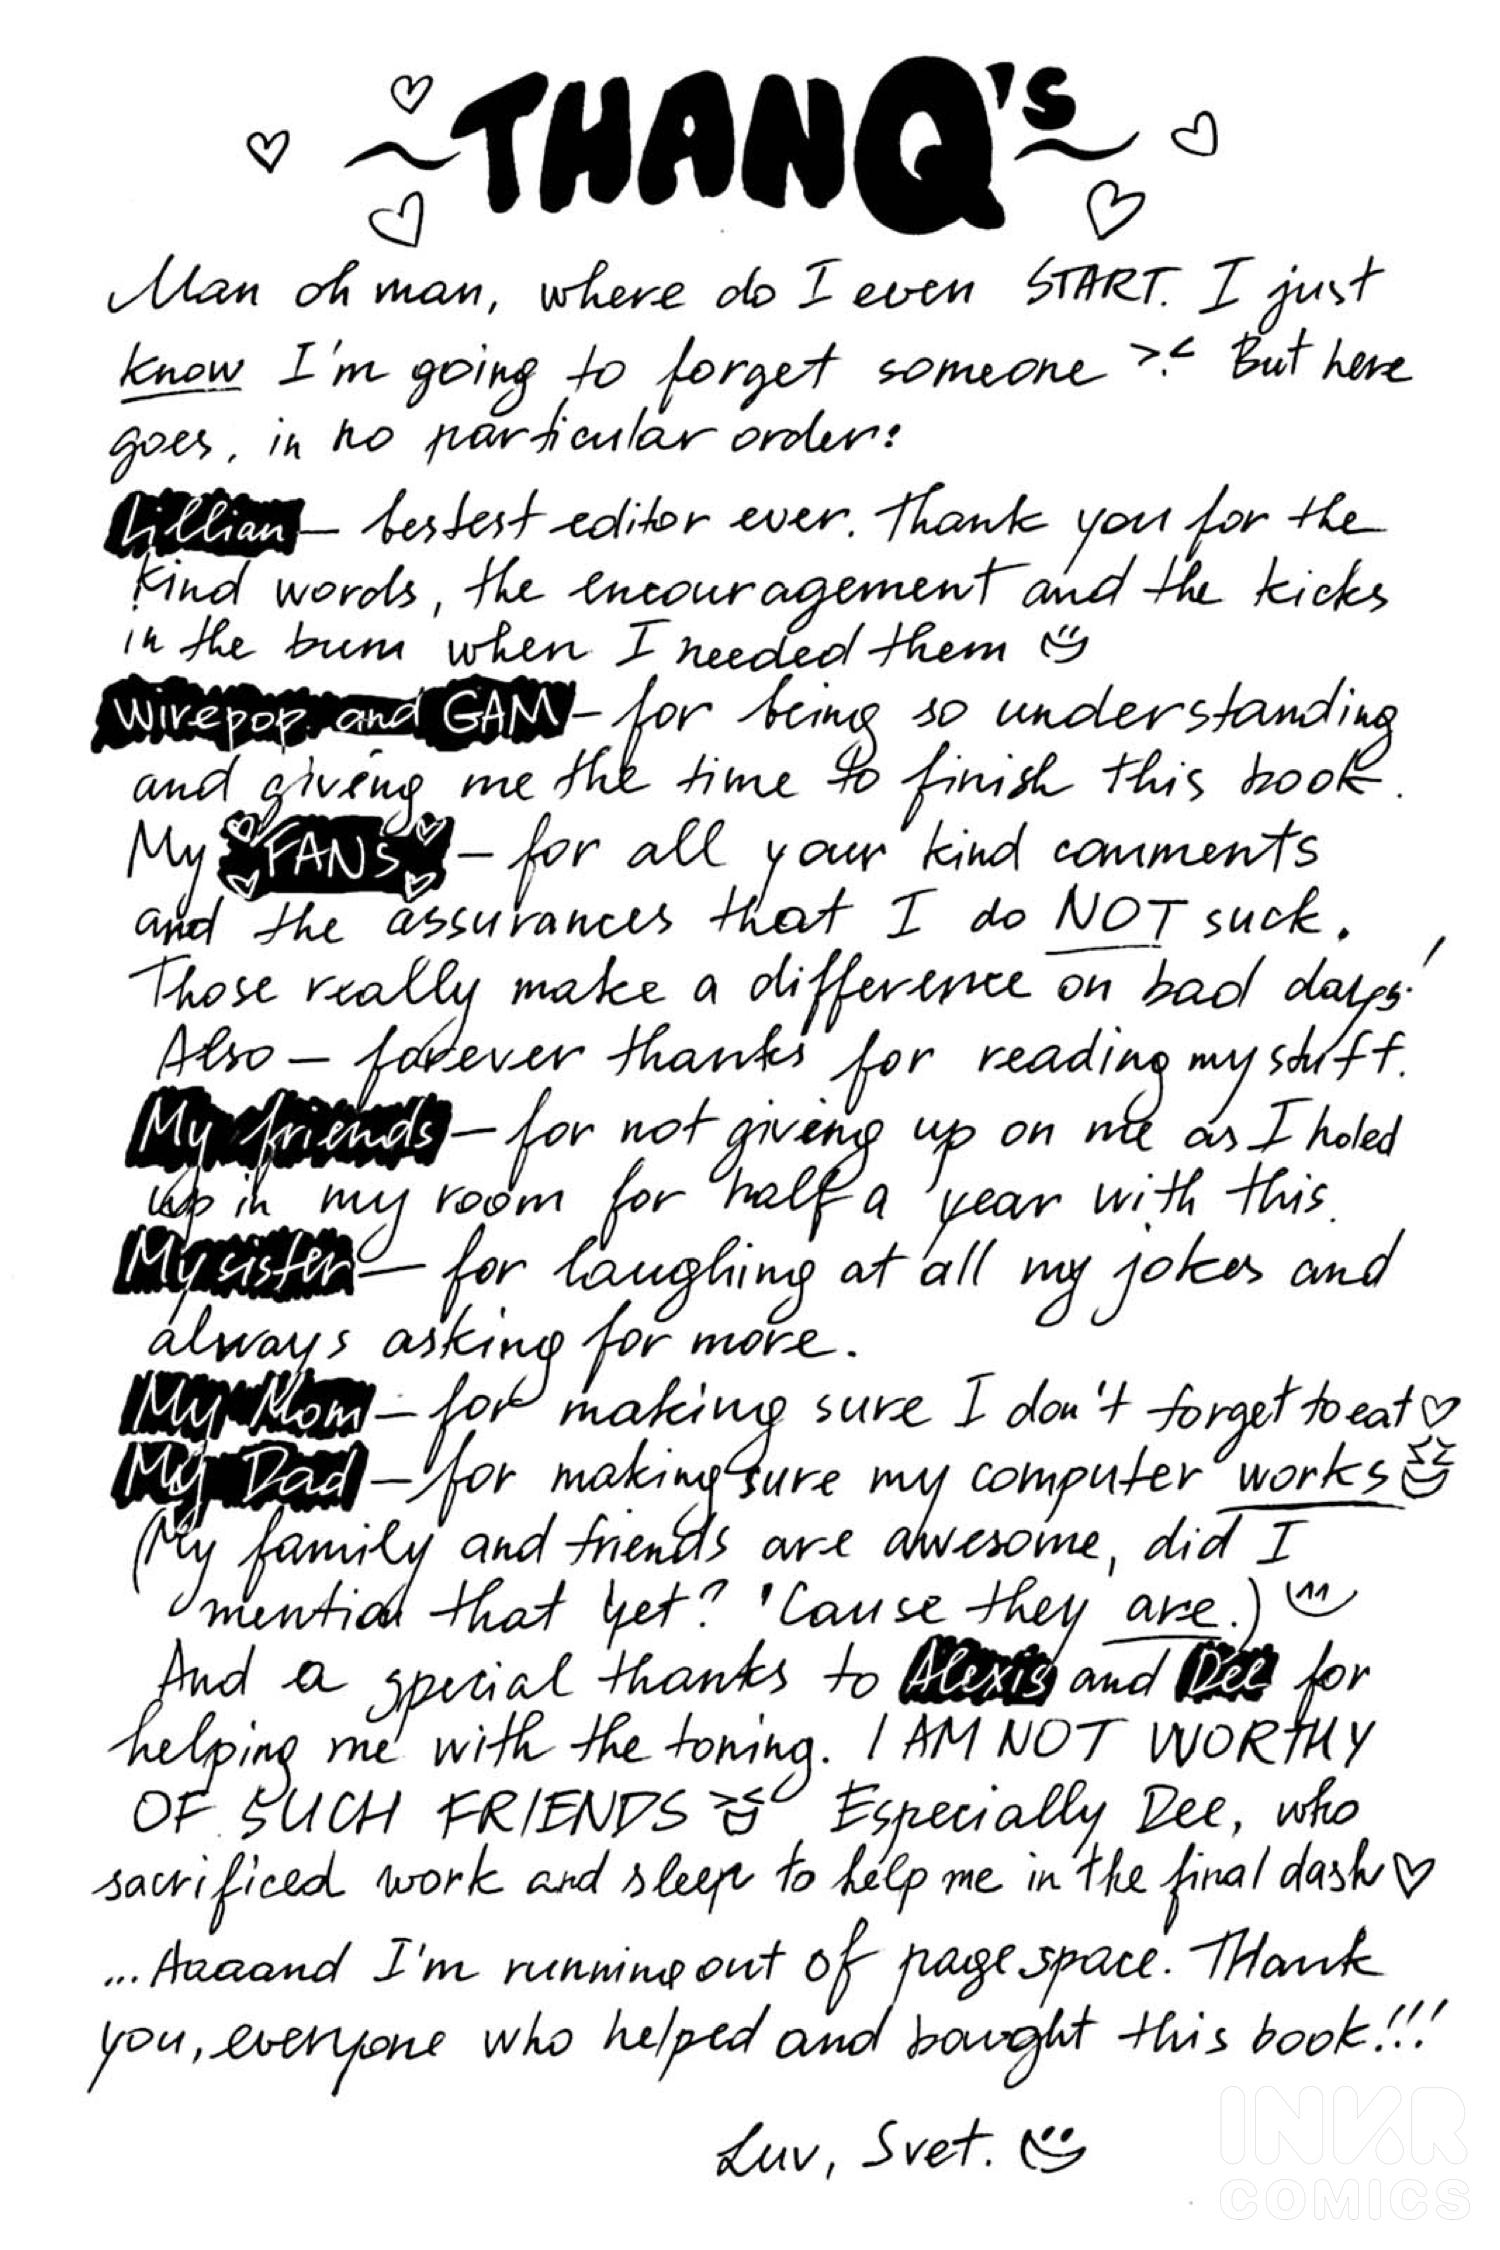 THANQ's
Man oh man, where do I even START. I just
know I'm going to forget someone >.< But here
goes, in no particular order:
Lillian – bestest editor ever. Thank you for the
kind words, the encouragement and the kicks
in the bum when I needed them
Wirepop and GAM – for being so understanding
and giving me the time to finish this book.
My FANS – for all your kind comments
and the assurances that I do NOT suck.
Those really make a difference on bad days!
Also – forever thanks for reading my stuff.
My friends – for not giving up on me as I holed
up in my room for half a year with this.
My sister – for laughing at all my jokes and
always asking for more.
My Mom – for making sure I don't forget to eat ♡
My Dad – for making sure my computer works
(My family and friends are awesome, did I
mention that yet? 'Cause they are.)
And a special thanks to Alexis and Dee for
helping me with the toning. I AM NOT WORTHY
OF SUCH FRIENDS Especially Dee, who
sacrificed work and sleep to help me in the final dash ♡
...Aaaand I'm running out of page space. THank
you, everyone who helped and bought this book!!!
Luv, Svet.
INKR
COMICS